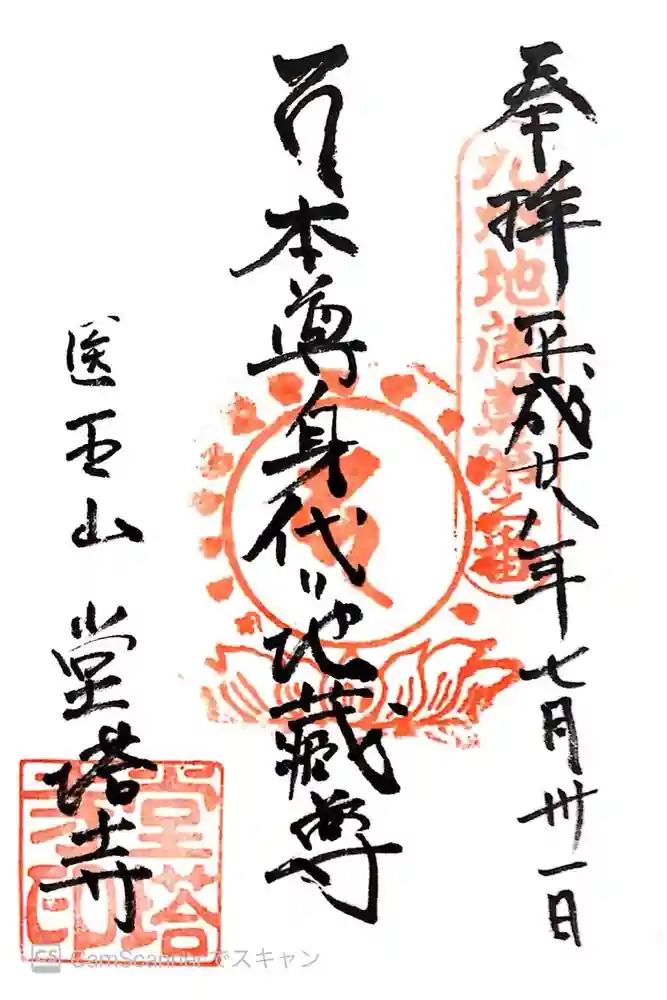 奉拝 平成廿八年七月卅一日
九州地蔵尊第 番
本尊身代り地藏尊
医王山 堂塔寺
堂塔寺印
CS CamScannerでスキャン